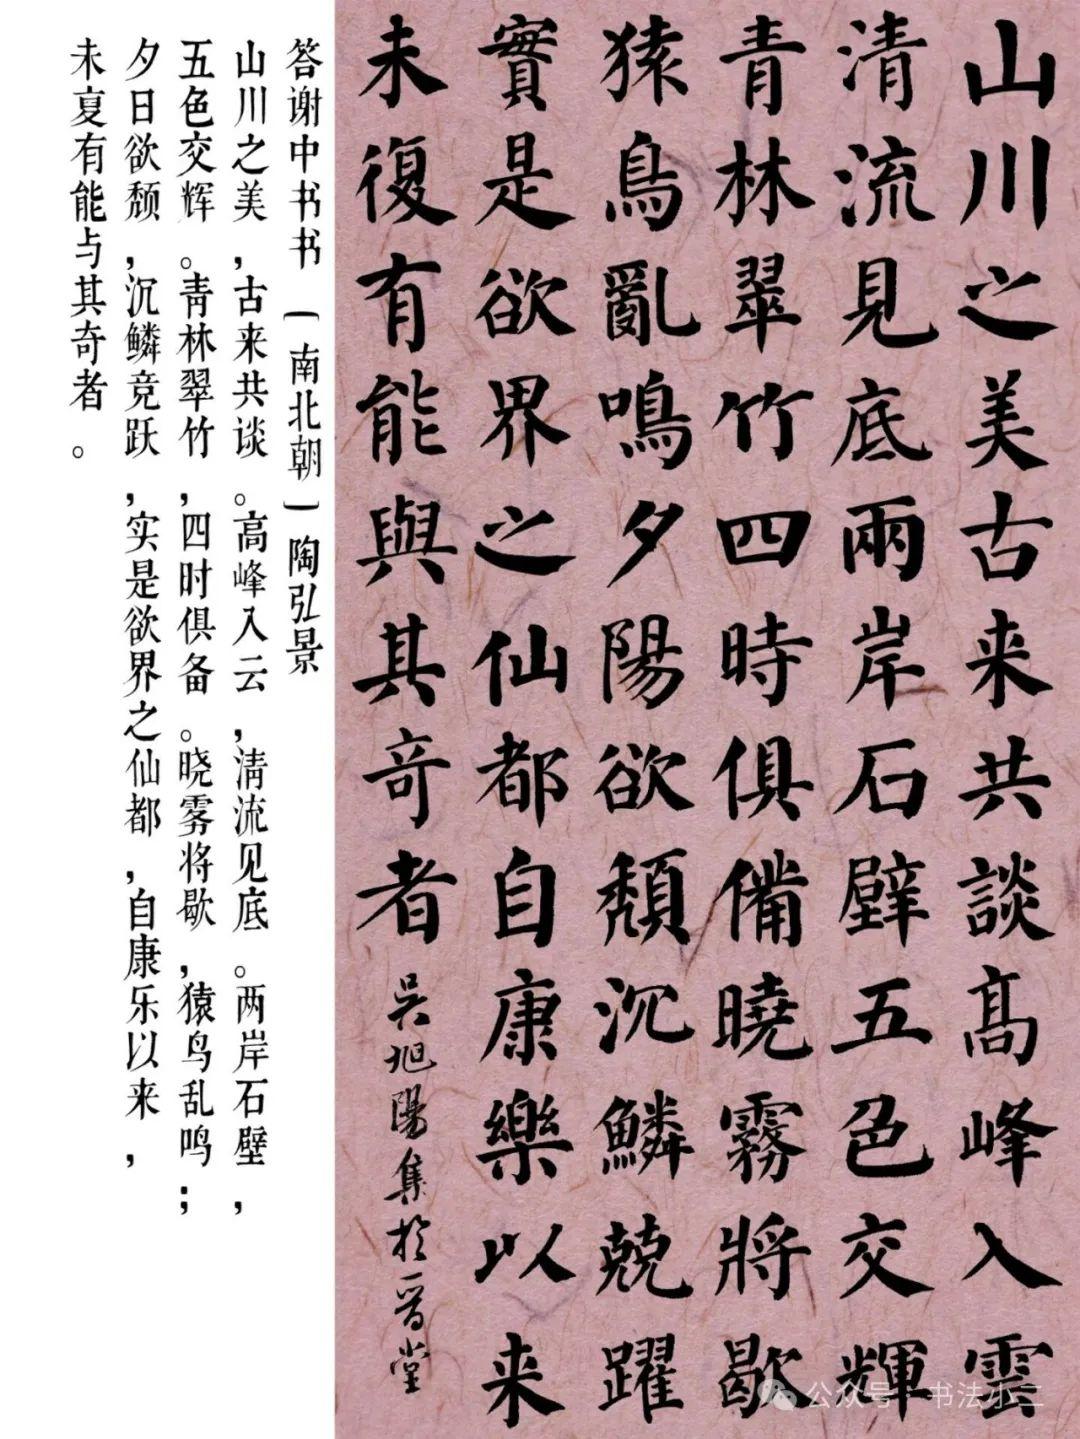 山川之美古来共談高峰入雲
清流見底兩岸石壁五色交輝
青林翠竹四時俱備曉霧將歇
猿鳥亂鳴夕陽欲頹沉鱗競躍
實是欲界之仙都自康樂以来
未復有能與其奇者
吴旭陽集於一商堂
答谢中书书(南北朝)陶弘景
山川之美,古来共谈。高峰入云,清流见底。两岸石壁,
五色交辉。青林翠竹,四时俱备。晓雾将歇,猿鸟乱鸣;
夕日欲颓,沉鳞竞跃,实是欲界之仙都,自康乐以来,
未复有能与其奇者。
公众号·书法小二